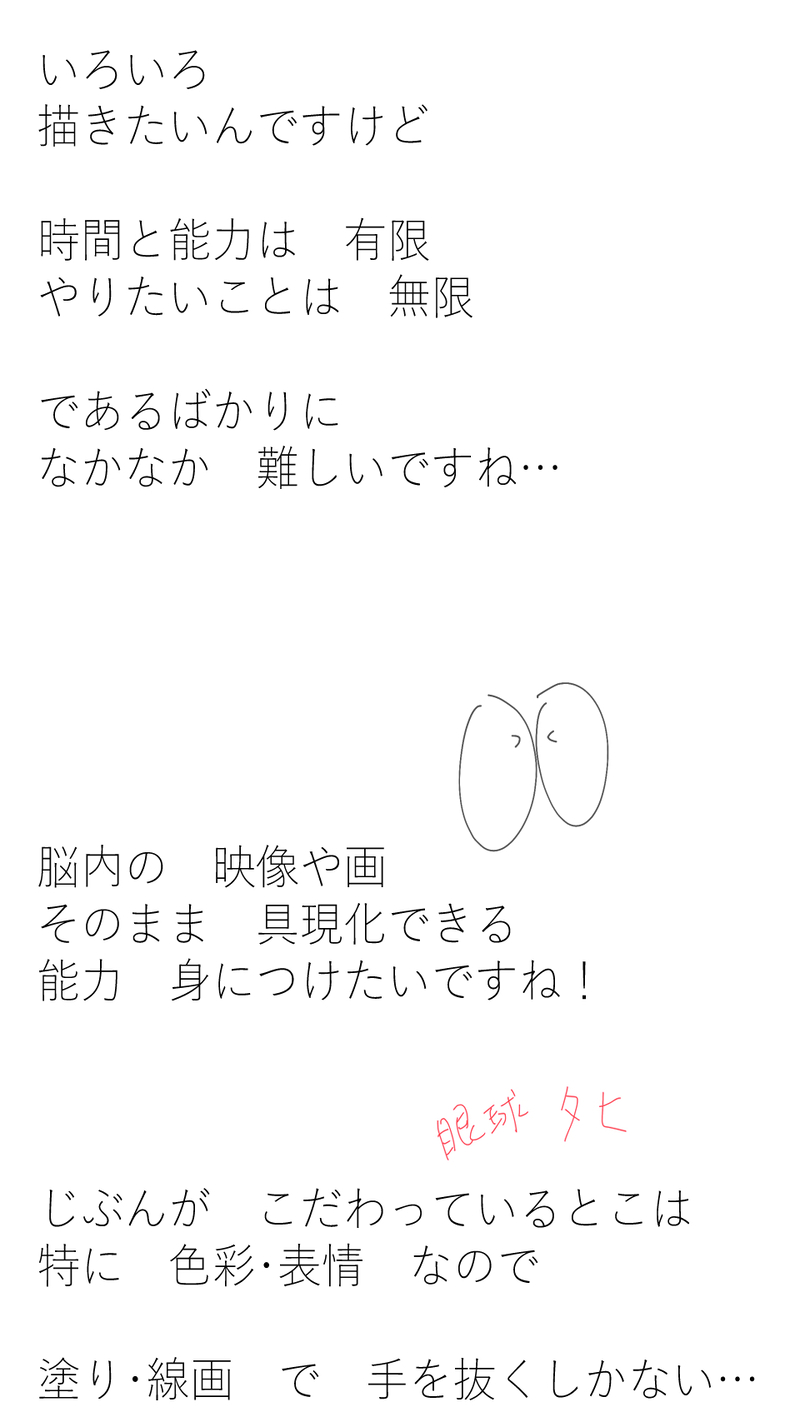 いろいろ
描きたいんですけど
時間と能力は　有限
やりたいことは　無限
であるばかりに
なかなか　難しいですね…
脳内の　映像や画
そのまま　具現化できる
能力　身につけたいですね！
眼球　タヒ
じぶんが　こだわっているとこは
特に　色彩・表情　なので
塗り・線画　で　手を抜くしかない…